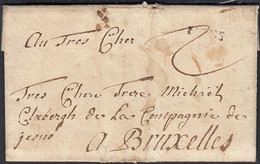 Au Tres Cher
Tres Chere Frere Michaël
de La Compagnie de
jesus
A Bruxelles